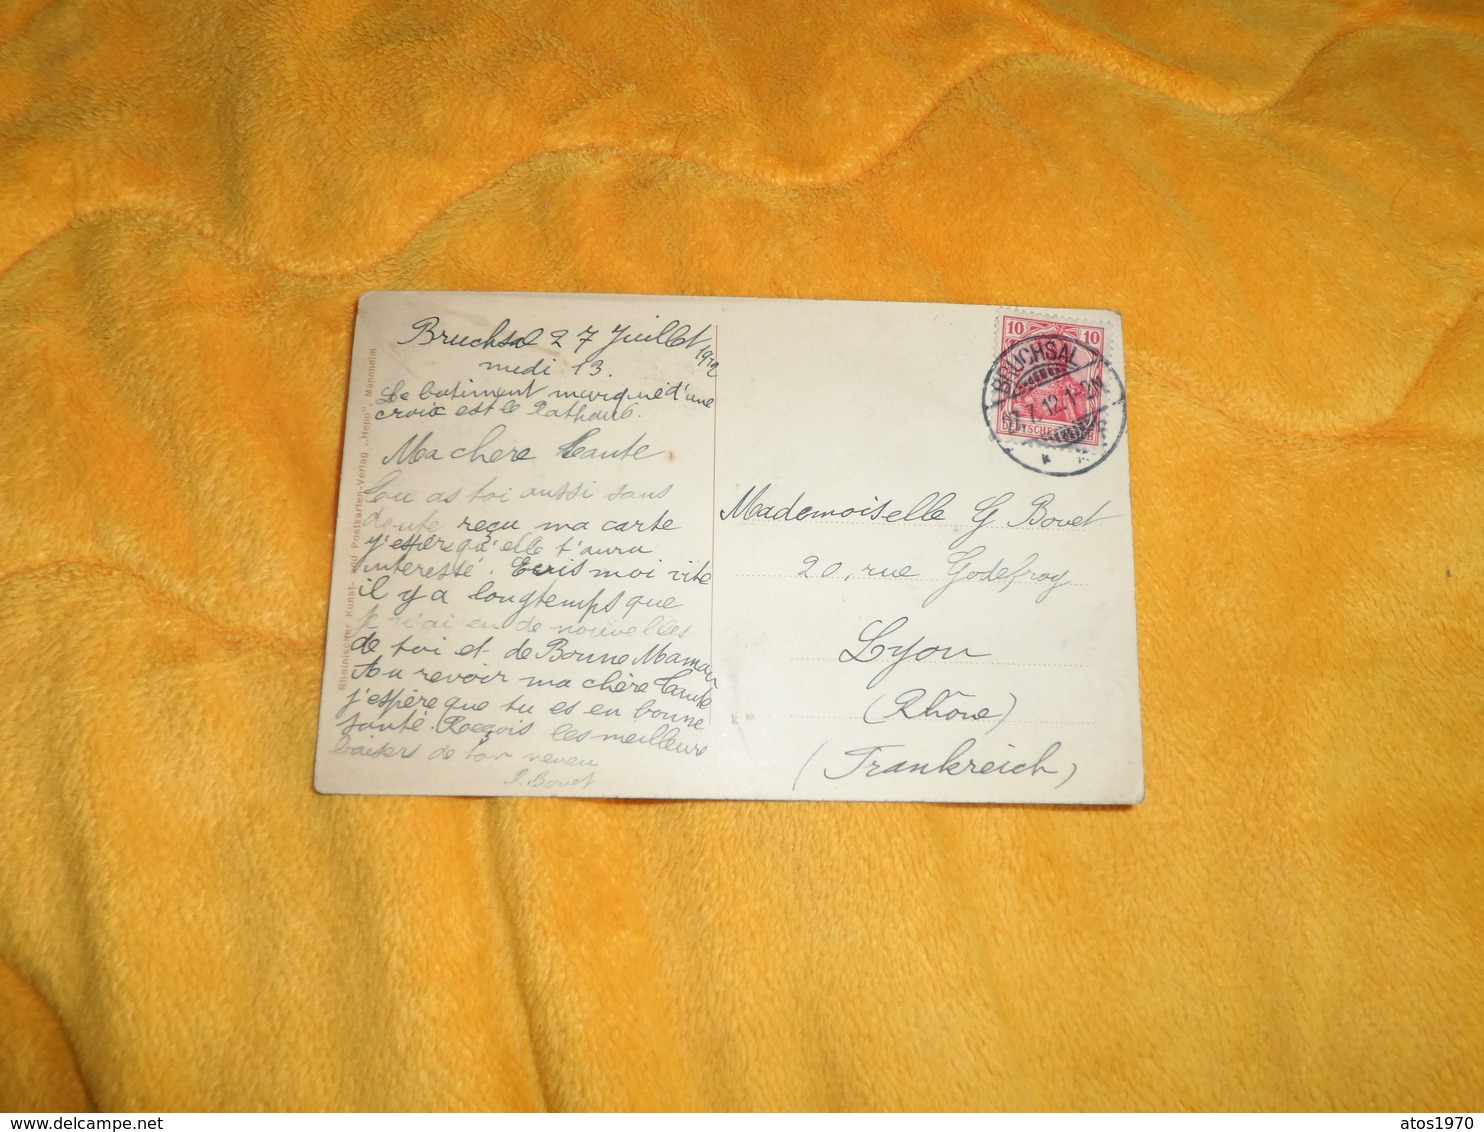 Bruchsal 27 Juillet 1912
midi 13.
Le batiment marqué d'une
croix est le Rathaus.
Ma chère Tante
Tu as toi aussi sans
doute reçu ma carte
j'espère qu'elle t'aura
interessé. Ecris moi vite
il y a longtemps que
je n'ai eu de nouvelles
de toi et de Bonne Maman
Au revoir ma chère Tante
j'espère que tu es en bonne
santé. Reçois les meilleurs
baisers de ton neveu
P. Bovet
Rheinischer Kunst- und Postkarten-Verlag „Hepp", Mannheim
10 10
DEUTSCHES REICH
BRUCHSAL
7.12.1-2N
Mademoiselle G Bovet
20, rue Godefroy
Lyon
(Rhône)
(Frankreich)
atos1970